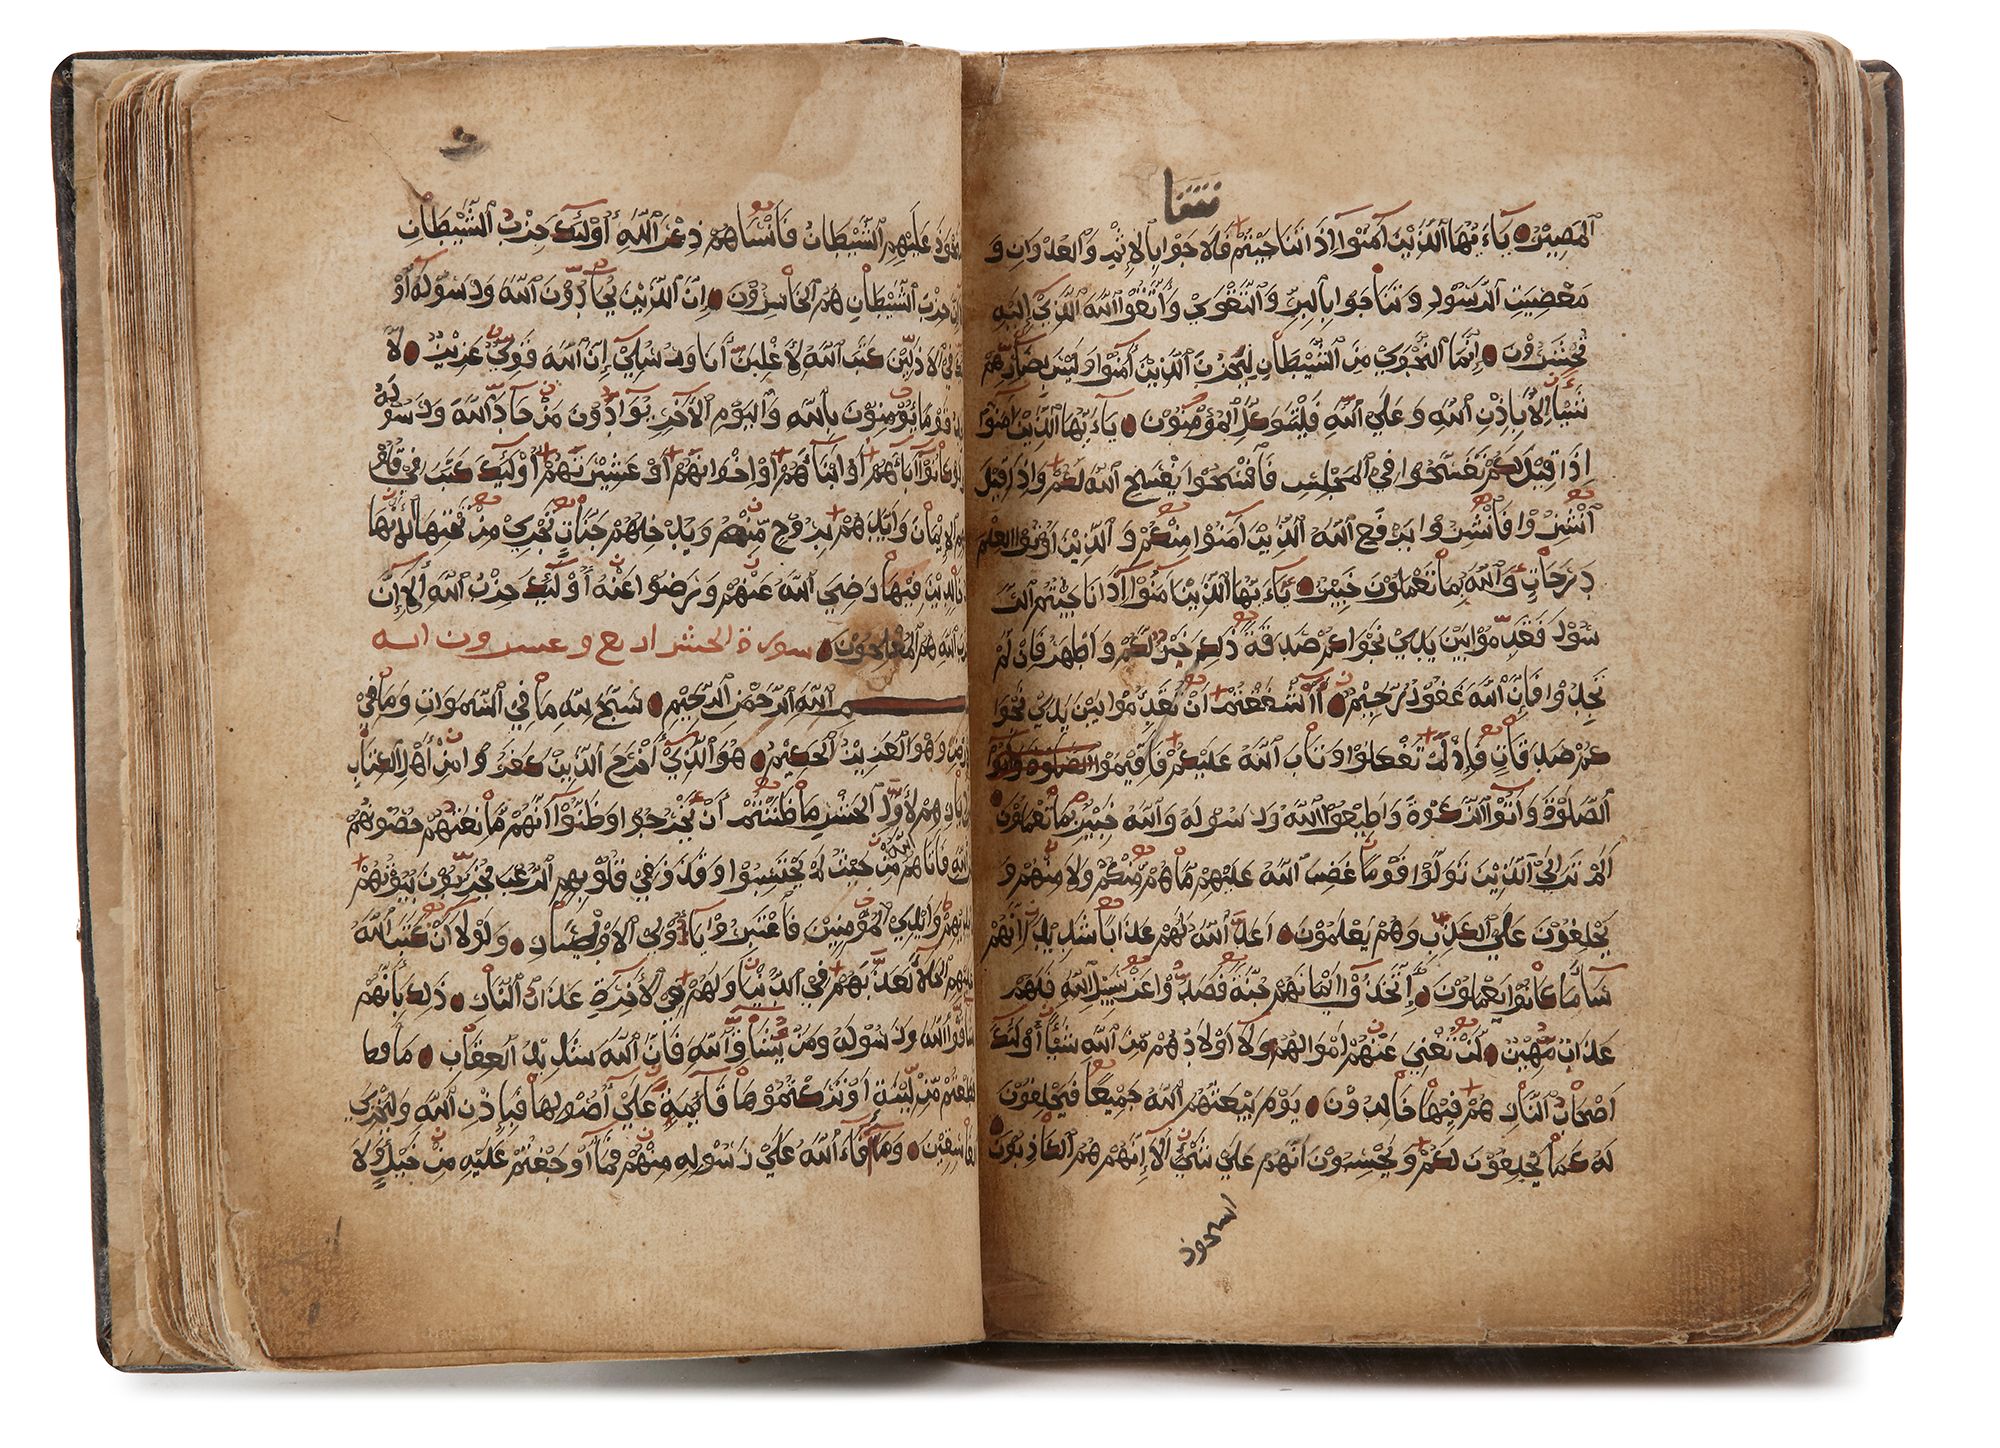 شَيْئًا
ٱلْمَصِيرُ يَاءَيُّهَا ٱلَّذِينَ آمَنُوا إِذَا تَنَاجَيْتُمْ فَلَا تَنَاجَوْا بِالْإِثْمِ وَٱلْعُدْوَانِ وَ
مَعْصِيَتِ ٱلرَّسُولِ وَتَنَاجَوْا بِالْبِرِّ وَٱلتَّقْوَى وَٱتَّقُوا ٱللَّهَ ٱلَّذِي إِلَيْهِ
تُحْشَرُونَ إِنَّمَا ٱلنَّجْوَى مِنَ ٱلشَّيْطَانِ لِيَحْزُنَ ٱلَّذِينَ آمَنُوا وَلَيْسَ بِضَارِّهِمْ
شَيْئًا إِلَّا بِإِذْنِ ٱللَّهِ وَعَلَى ٱللَّهِ فَلْيَتَوَكَّلِ ٱلْمُؤْمِنُونَ يَاءَيُّهَا ٱلَّذِينَ آمَنُوا
إِذَا قِيلَ لَكُمْ تَفَسَّحُوا فِي ٱلْمَجْلِسِ فَٱفْسَحُوا يَفْسَحِ ٱللَّهُ لَكُمْ وَإِذَا قِيلَ
ٱنْشُزُوا فَٱنْشُزُوا يَرْفَعِ ٱللَّهُ ٱلَّذِينَ آمَنُوا مِنْكُمْ وَٱلَّذِينَ أُوتُوا ٱلْعِلْمَ
دَرَجَاتٍ وَٱللَّهُ بِمَا تَعْمَلُونَ خَبِيرٌ يَاءَيُّهَا ٱلَّذِينَ آمَنُوا إِذَا نَاجَيْتُمُ ٱلرَّ
سُولَ فَقَدِّمُوا بَيْنَ يَدَيْ نَجْوَاكُمْ صَدَقَةً ذَلِكَ خَيْرٌ لَكُمْ وَأَطْهَرُ فَإِنْ لَمْ
تَجِدُوا فَإِنَّ ٱللَّهَ غَفُورٌ رَحِيمٌ أَأَشْفَقْتُمْ أَنْ تُقَدِّمُوا بَيْنَ يَدَيْ نَجْوَا
كُمْ صَدَقَاتٍ فَإِذْ لَمْ تَفْعَلُوا وَتَابَ ٱللَّهُ عَلَيْكُمْ فَأَقِيمُوا ٱلصَّلَوةَ وَآتُوا
ٱلصَّلَوةَ وَآتُوا ٱلزَّكَوةَ وَأَطِيعُوا ٱللَّهَ وَرَسُولَهُ وَٱللَّهُ خَبِيرٌ بِمَا تَعْمَلُونَ
أَلَمْ تَرَ إِلَى ٱلَّذِينَ تَوَلَّوْا قَوْمًا غَضِبَ ٱللَّهُ عَلَيْهِمْ مَا هُمْ مِنْكُمْ وَلَا مِنْهُمْ وَ
يَحْلِفُونَ عَلَى ٱلْكَذِبِ وَهُمْ يَعْلَمُونَ أَعَدَّ ٱللَّهُ لَهُمْ عَذَابًا شَدِيدًا إِنَّهُمْ
سَاءَ مَا كَانُوا يَعْمَلُونَ إِتَّخَذُوا أَيْمَانَهُمْ جُنَّةً فَصَدُّوا عَنْ سَبِيلِ ٱللَّهِ فَلَهُمْ
عَذَابٌ مُهِينٌ لَنْ تُغْنِيَ عَنْهُمْ أَمْوَالُهُمْ وَلَا أَوْلَادُهُمْ مِنَ ٱللَّهِ شَيْئًا أُولَئِكَ
أَصْحَابُ ٱلنَّارِ هُمْ فِيهَا خَالِدُونَ يَوْمَ يَبْعَثُهُمُ ٱللَّهُ جَمِيعًا فَيَحْلِفُونَ
لَهُ كَمَا يَحْلِفُونَ لَكُمْ وَيَحْسِبُونَ أَنَّهُمْ عَلَى شَيْءٍ أَلَا إِنَّهُمْ هُمُ ٱلْكَاذِبُونَ
استحوذ
عَلَيْهِمُ ٱلشَّيْطَانُ فَأَنْسَاهُمْ ذِكْرَ ٱللَّهِ أُولَئِكَ حِزْبُ ٱلشَّيْطَانِ
حِزْبَ ٱلشَّيْطَانِ هُمُ ٱلْخَاسِرُونَ إِنَّ ٱلَّذِينَ يُحَادُّونَ ٱللَّهَ وَرَسُولَهُ أُو
فِي ٱلْأَذَلِّينَ كَتَبَ ٱللَّهُ لَأَغْلِبَنَّ أَنَا وَرُسُلِي إِنَّ ٱللَّهَ قَوِيٌّ عَزِيزٌ لَا
قَوْمًا يُؤْمِنُونَ بِٱللَّهِ وَٱلْيَوْمِ ٱلْآخِرِ يُوَادُّونَ مَنْ حَادَّ ٱللَّهَ وَرَسُولَهُ
كَانُوا آبَاءَهُمْ أَوْ أَبْنَاءَهُمْ أَوْ إِخْوَانَهُمْ أَوْ عَشِيرَتَهُمْ أُولَئِكَ كَتَبَ فِي قُلُو
ٱلْإِيمَانَ وَأَيَّدَهُمْ بِرُوحٍ مِنْهُ وَيُدْخِلُهُمْ جَنَّاتٍ تَجْرِي مِنْ تَحْتِهَا ٱلْأَنْهَا
خَالِدِينَ فِيهَا رَضِيَ ٱللَّهُ عَنْهُمْ وَرَضُوا عَنْهُ أُولَئِكَ حِزْبُ ٱللَّهِ أَلَا إِنَّ
حِزْبَ ٱللَّهِ هُمُ ٱلْمُفْلِحُونَ سورة الحشر اربع وعسرون ايه
ٱللَّهِ ٱلرَّحْمَنِ ٱلرَّحِيمِ سَبَّحَ لِلَّهِ مَا فِي ٱلسَّمَوَاتِ وَمَا فِي
وَهُوَ ٱلْعَزِيزُ ٱلْحَكِيمُ هُوَ ٱلَّذِي أَخْرَجَ ٱلَّذِينَ كَفَرُوا مِنْ أَهْلِ ٱلْكِتَابِ
دِيَارِهِمْ لِأَوَّلِ ٱلْحَشْرِ مَا ظَنَنْتُمْ أَنْ يَخْرُجُوا وَظَنُّوا أَنَّهُمْ مَانِعَتُهُمْ حُصُونُهُمْ
ٱللَّهِ فَأَتَاهُمُ ٱللَّهُ مِنْ حَيْثُ لَمْ يَحْتَسِبُوا وَقَذَفَ فِي قُلُوبِهِمُ ٱلرُّعْبَ يُخْرِبُونَ بُيُوتَهُمْ
بِأَيْدِيهِمْ وَأَيْدِي ٱلْمُؤْمِنِينَ فَٱعْتَبِرُوا يَاأُولِي ٱلْأَبْصَارِ وَلَوْلَا أَنْ كَتَبَ ٱللَّهُ
عَلَيْهِمُ ٱلْجَلَاءَ لَعَذَّبَهُمْ فِي ٱلدُّنْيَا وَلَهُمْ فِي ٱلْآخِرَةِ عَذَابُ ٱلنَّارِ ذَلِكَ بِأَنَّهُمْ
شَاقُّوا ٱللَّهَ وَرَسُولَهُ وَمَنْ يُشَاقِّ ٱللَّهَ فَإِنَّ ٱللَّهَ شَدِيدُ ٱلْعِقَابِ مَا
قَطَعْتُمْ مِنْ لِينَةٍ أَوْ تَرَكْتُمُوهَا قَائِمَةً عَلَى أُصُولِهَا فَبِإِذْنِ ٱللَّهِ وَلِيُخْزِيَ
ٱلْفَاسِقِينَ وَمَا أَفَاءَ ٱللَّهُ عَلَى رَسُولِهِ مِنْهُمْ فَمَا أَوْجَفْتُمْ عَلَيْهِ مِنْ خَيْلٍ وَلَا